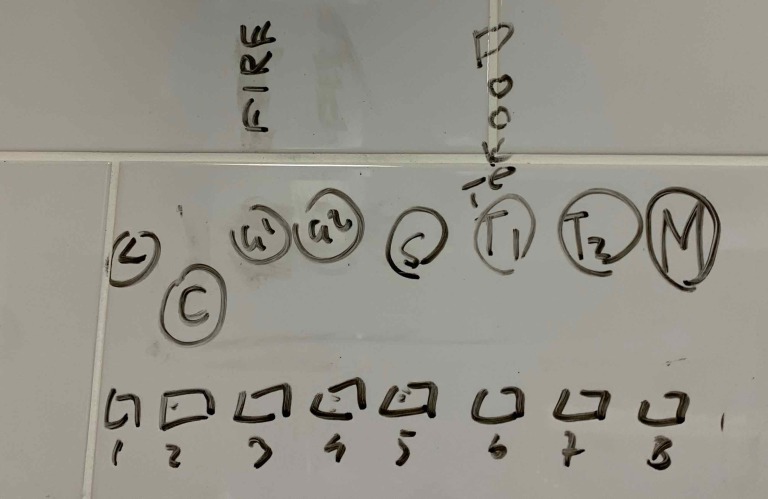 FIRE
Dookie
L C G1 G2 S T1 T2 M
1 2 3 4 5 6 7 8